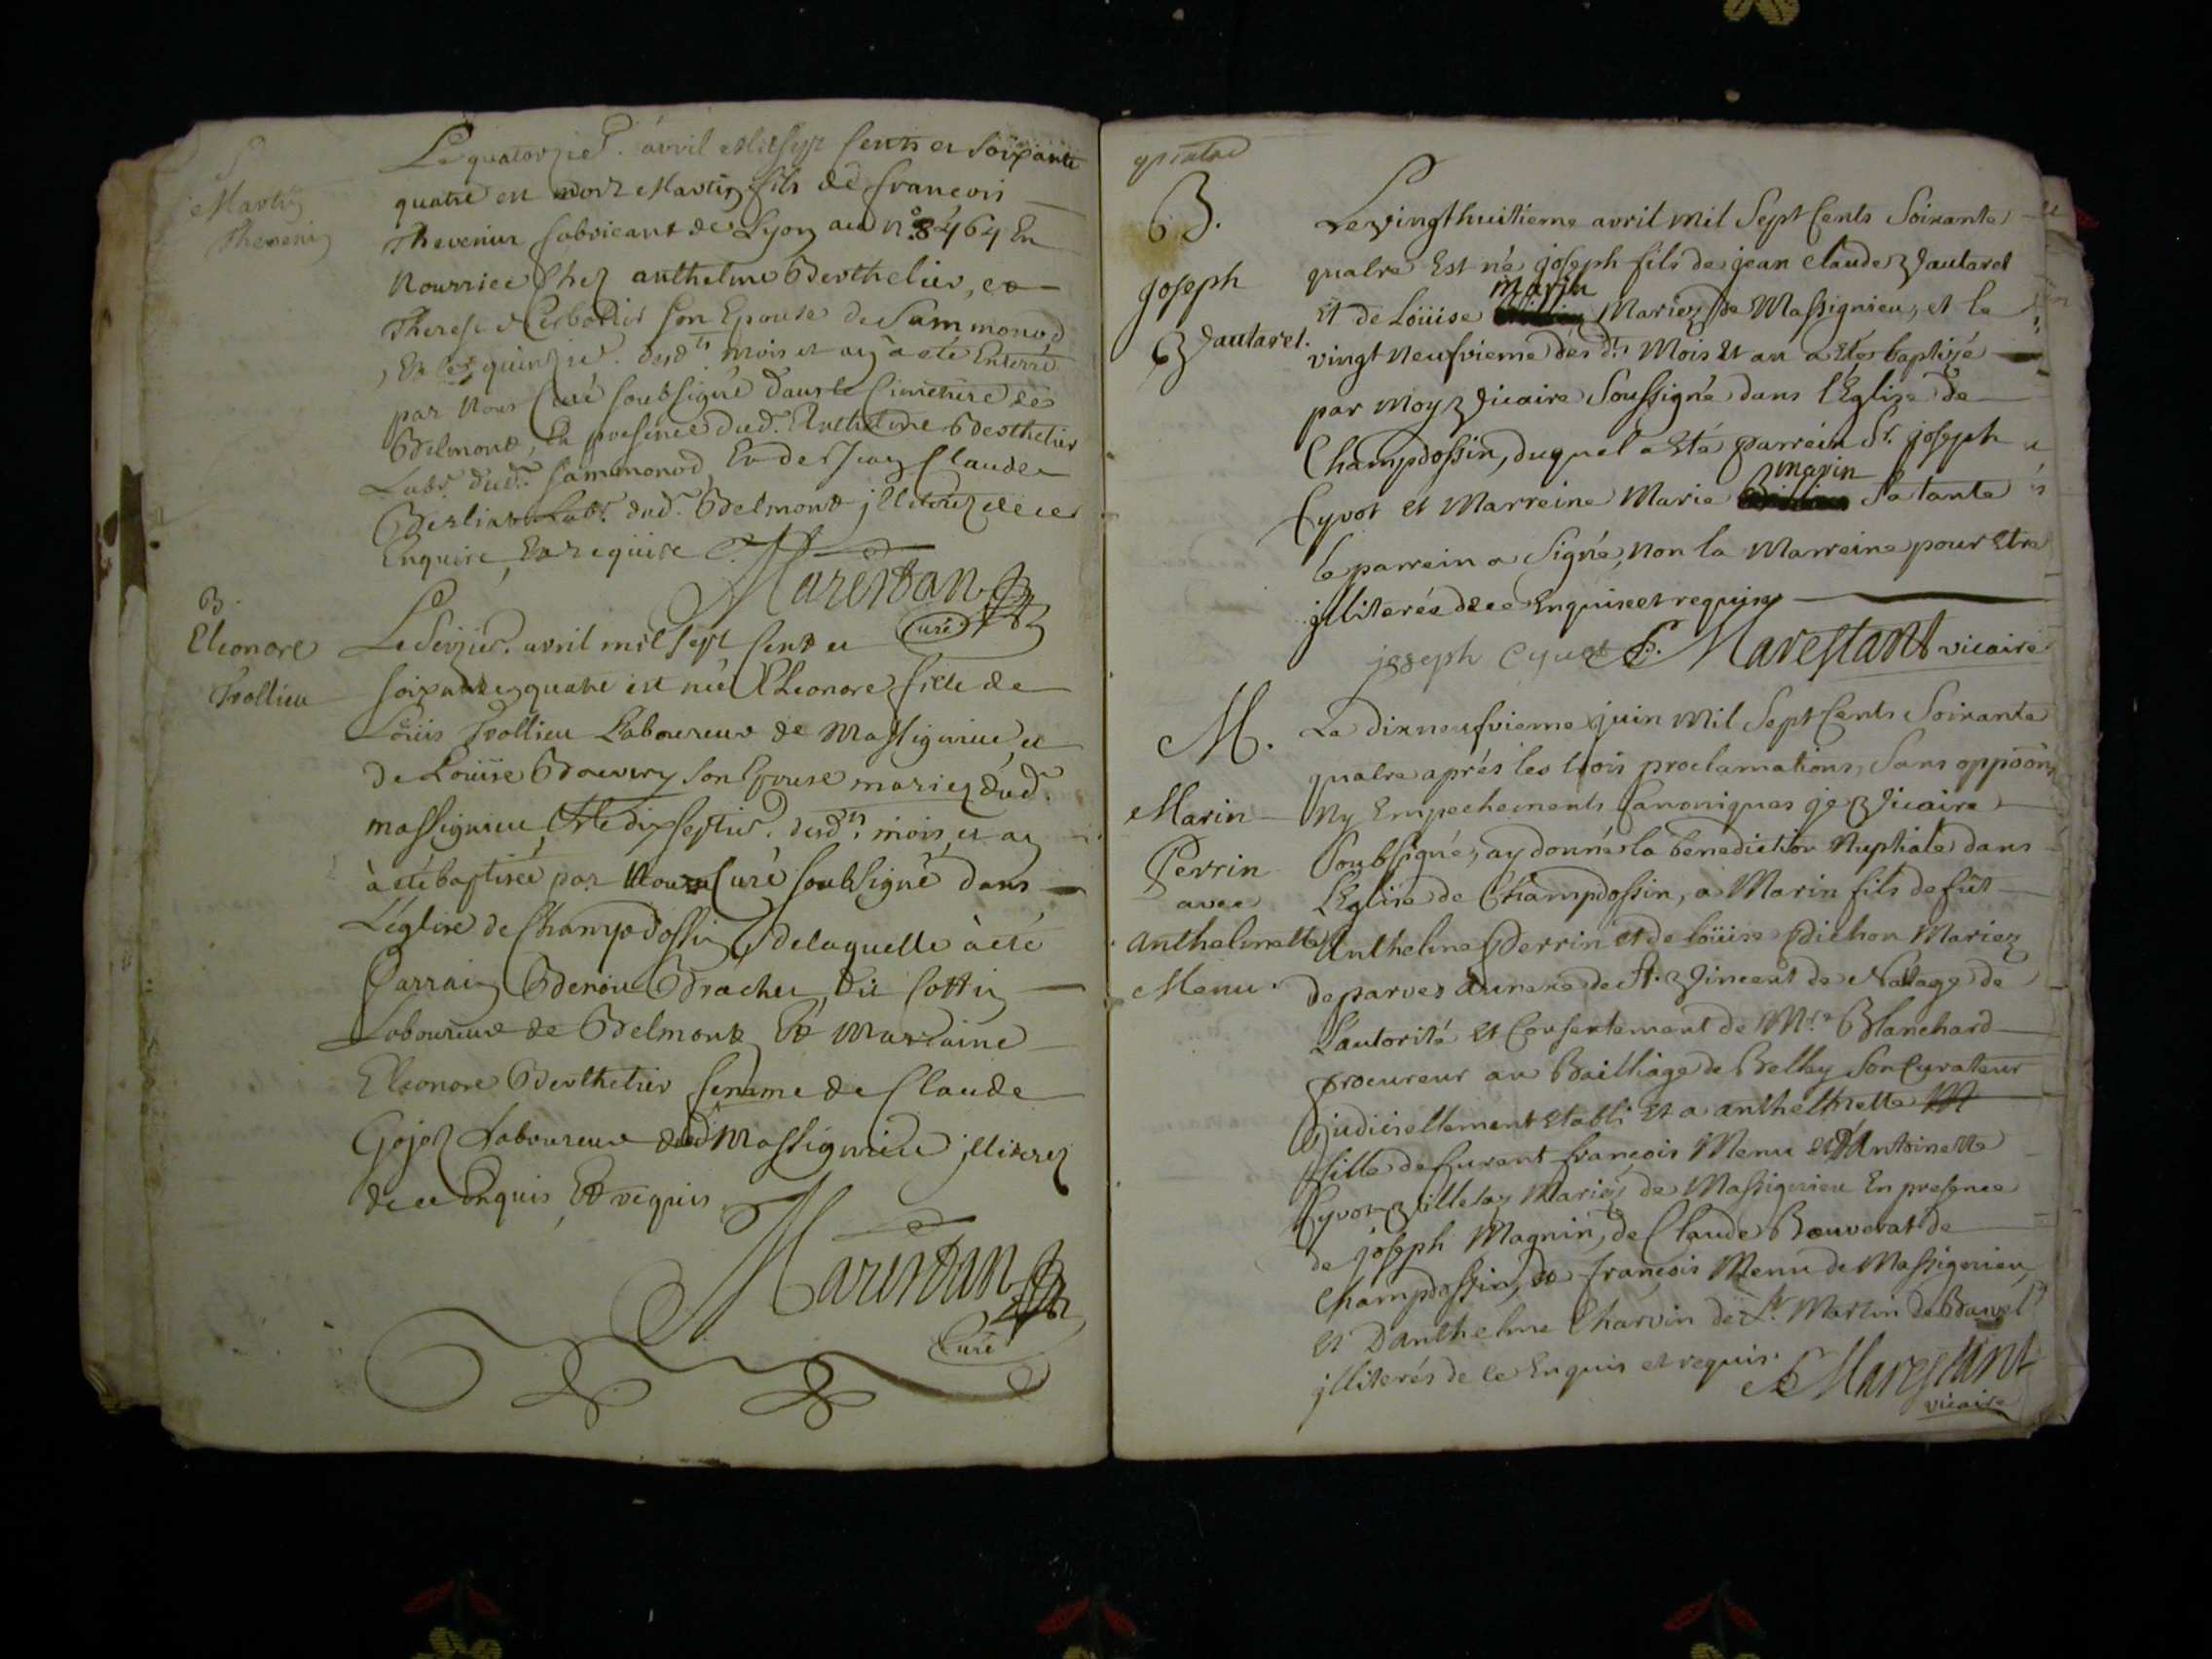 S
Martin
Thevenin
Le quatorzie. avril Mil sept Cents et soixante
quatre est mort Martin fils de françois
Thevenin fabricant de Lyon au n°. 8464 En
Nourrice Chez anthelme Berthelier, et
Therese son Epouse de Sammonod
, Et le quinzie. desd.ts mois et an a eté Enterré
par Nous Curé soubsigné dans le Cimetiere de
Belmont, En presence dud. Anthelme Berthelier
Labr. dud. Sammonod, Et de Jean Claude
Berlion Labr. dud. Belmont jlliterez de ce
Enquire, Et require
Marestan
Curé
B.
Eleonore
Trollieu
Le seizie. avril mil sept Cent et
soixante quatre est née Eleonore fille de
Loüis Trollieu Laboureur de Massignieu, et
de Loüise Bouvery son Epouse mariez dud.
massignieu, Et le dix septie. desd.ts mois et an
à eté baptisée par Nous Curé soubsigné dans
L'église de Champdossin, de laquelle à eté
Parrain Benoit Brachet, dit Cottin
Laboureur de Belmont, Et Marraine
Eleonore Berthelier femme de Claude
Gojoz Laboureur dud. Massignieu jlliterez
de ce Enquis, Et requis
Marestan
Curé
quatre
B.
Joseph
Vautaret.
Le vingt huitieme avril mil Sept Cents Soixante
quatre Est né joseph fils de jean Claude Vautaret
marin
Et de Loüise Mariez de Massignieu, et le
vingt Neufvieme des d.ts Mois Et an a Eté baptizé
par moy Vicaire Soussigné dans l'Eglise de
Champdossin, duquel a Eté parrein Sr. joseph
marin
Cyvot et Marreine Marie Sa tante
le parrein a Signé, non la Marreine pour Etre
jlliterée de ce Enquise et requise
joseph Cyvot Marestant vicaire
M.
Marin
Perrin
avec
Anthelmette
Menu.
Le dixneufvieme juin Mil Sept Cents Soixante
quatre aprés les trois proclamations, Sans oppõons
Ny Empechements Canoniques je Vicaire
Soubsigné, ay donné la benediction Nuptiale dans
L'Eglise de Champdossin, a Marin fils de fût
Anthelme Perrin et de Loüise Pichon Mariez
de parves annexe de St. Vincent de Natage de
L'autorité Et Consentement de Mr. Blanchard
procureur au Bailliage de Belley Son Curateur
judiciellement Etabli Et a anthelmette M
fille de furent françois Menu et d'Antoinette
Cyvoz Mariez de Massignieu En presence
de joseph Magnin, de Claude Bouverat de
Champdossin, de françois Menu de Massignieu,
et D'anthelme Charvin de St. Martin de Bavel
jlliterés de ce Enquis et requis.
Marestant
vicaire